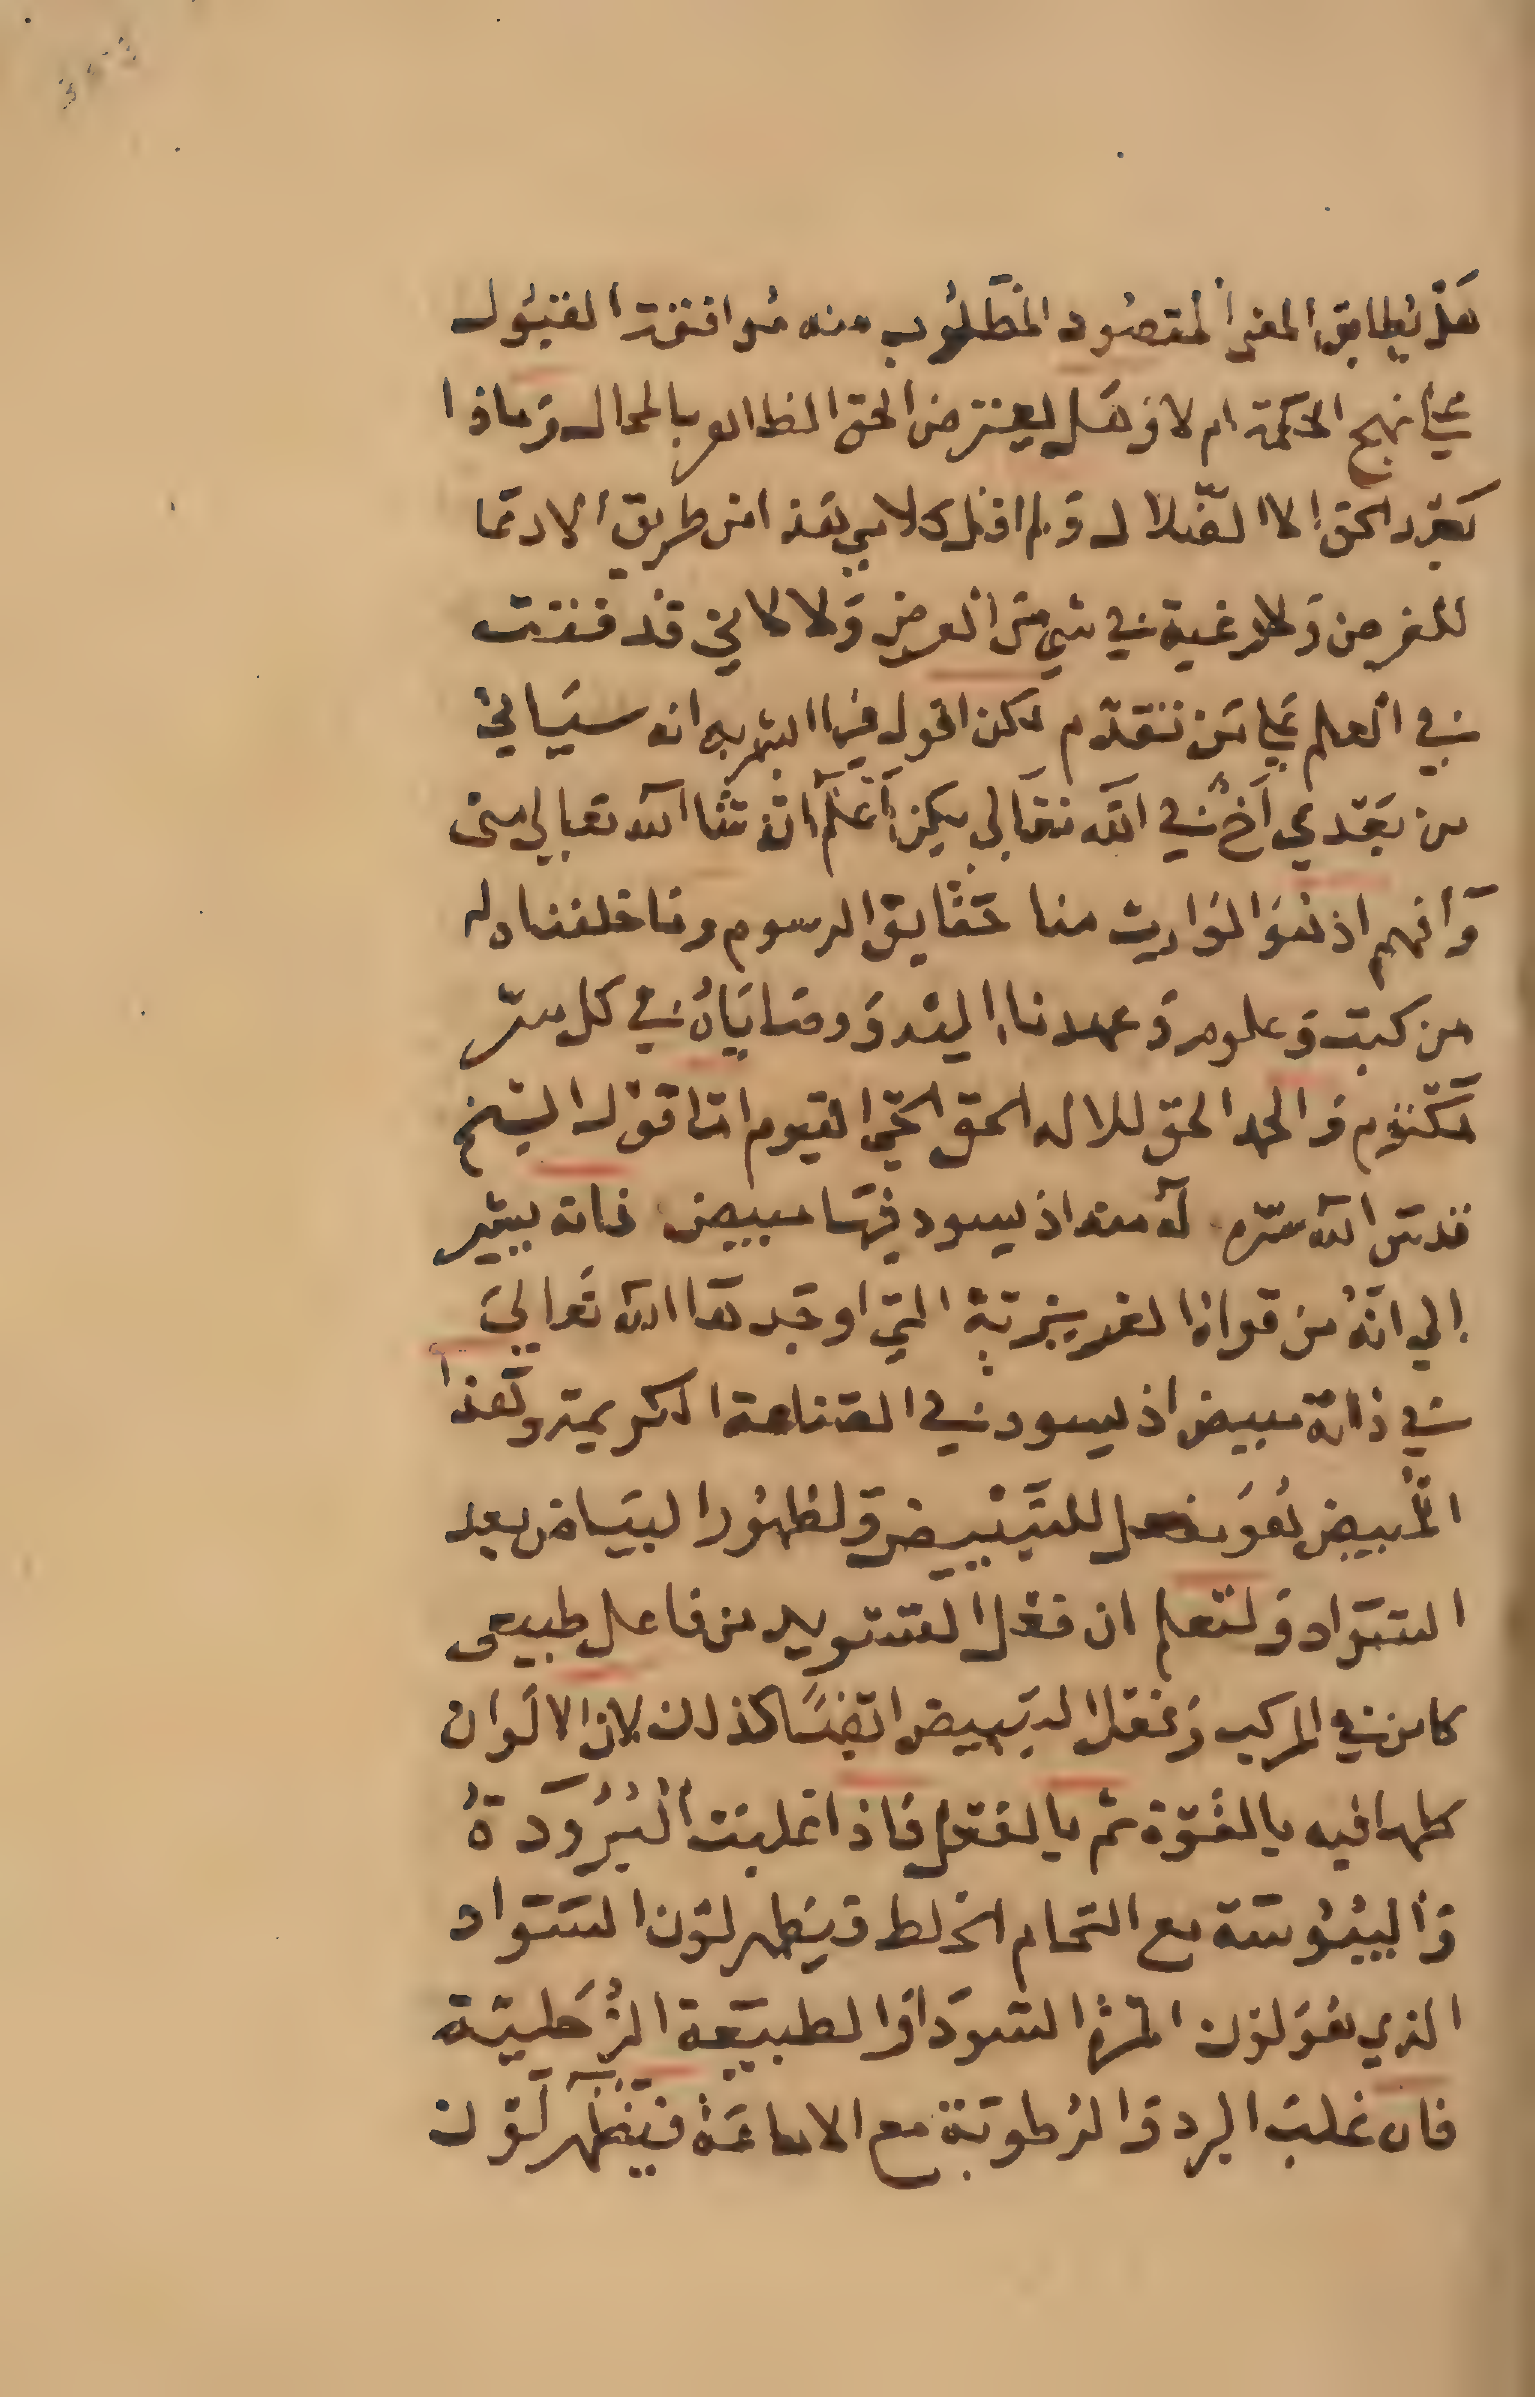 هل يطابق المعنى المقصود المطلوب منه موافقة القبول
على نهج الحكمة ام لا وهل يعترض الحق الظاهر بالمحال وماذا
بعد الحق الا الضلال ولم اقل كلامي هذا من طريق الادعا
للغرض ولا رغبة في شي من العرض ولا لاني قد فقت
في العلم على من تقدم لكن اقول فيما ابشر به انه سيأتي
من بعدي اخ في الله تعالى يكن اعلم ان شا الله تعالى مني
وافهم اذ هو الوارث منا حقايق الرسوم وما خلفناه له
من كتب وعلوم وعهدنا اليه ووصاياه في كل سر
مكتوم والحمد الحق للاله الحق الحي القيوم اما قول الشيخ
قدس الله سره له منه اذ يسود فيها مبيض فانه يشير
الى انه من قواه الغريزية التي اوجدها الله تعالى
في ذاته مبيض اذ يسود في الصناعة الكريمة وهذا
المبيض هو فعل للتبييض ولظهور البياض بعد
السواد ولتعلم ان فعل التسويد من فاعل طبيعى
كامن في المركب وفعل التبييض ايضا كذلك لان الالوان
كلها فيه بالقوة ثم بالفعل فاذا غلبت البرودة
واليبوسة مع التحام الخلط فيظهر لون السواد
الذي هو لون المرة السودا والطبيعة الزحلية
فان غلب البرد والرطوبة مع الاماعة فيظهر لون